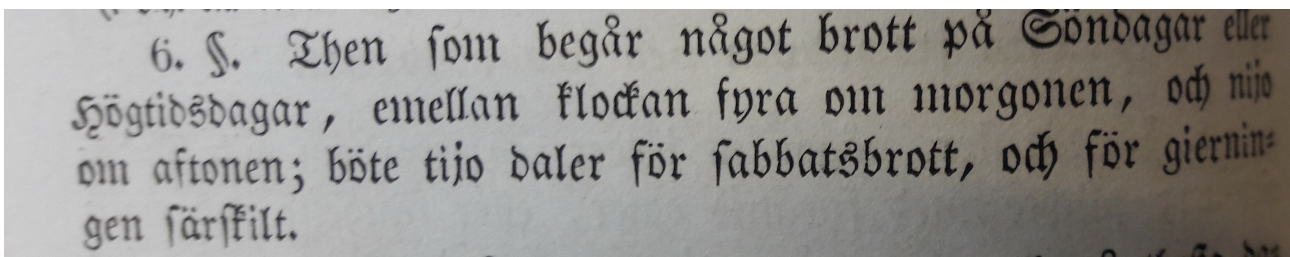 6. §. Then som begår något brott på Söndagar eller
Högtidsdagar, emellan klockan fyra om morgonen, och nijo
om aftonen; böte tijo daler för sabbatsbrott, och för giernin-
gen särskilt.